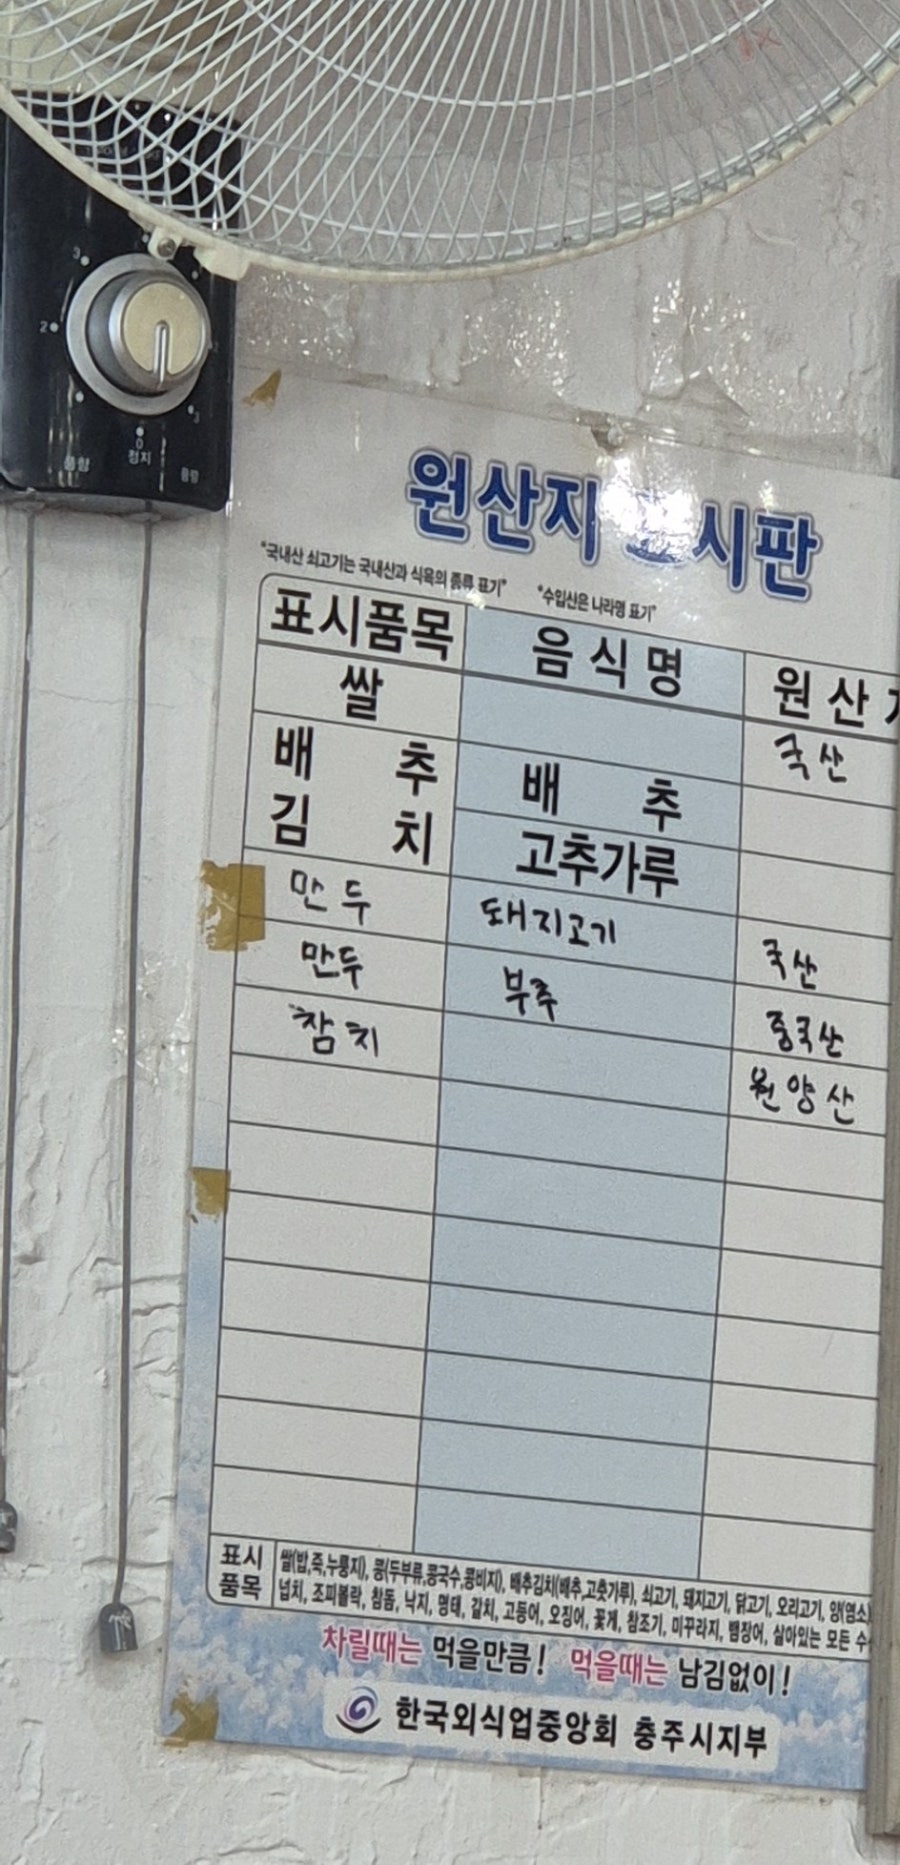 3
2
3
0
정지
풍향
풍량
원산지 표시판
"국내산 쇠고기는 국내산과 식육의 종류 표기" "수입산은 나라명 표기"
표시품목 음식명 원산
쌀 국산
배추 배추
김치 고추가루
만두 돼지고기 국산
만두 부추 중국산
참치 원양산
표시 쌀(밥,죽,누룽지), 콩(두부류,콩국수,콩비지), 배추김치(배추,고춧가루), 쇠고기, 돼지고기, 닭고기, 오리고기, 양(염소)
품목 넙치, 조피볼락, 참돔, 낙지, 명태, 갈치, 고등어, 오징어, 꽃게, 참조기, 미꾸라지, 뱀장어, 살아있는 모든 수
차릴때는 먹을만큼! 먹을때는 남김없이!
한국외식업중앙회 충주시지부